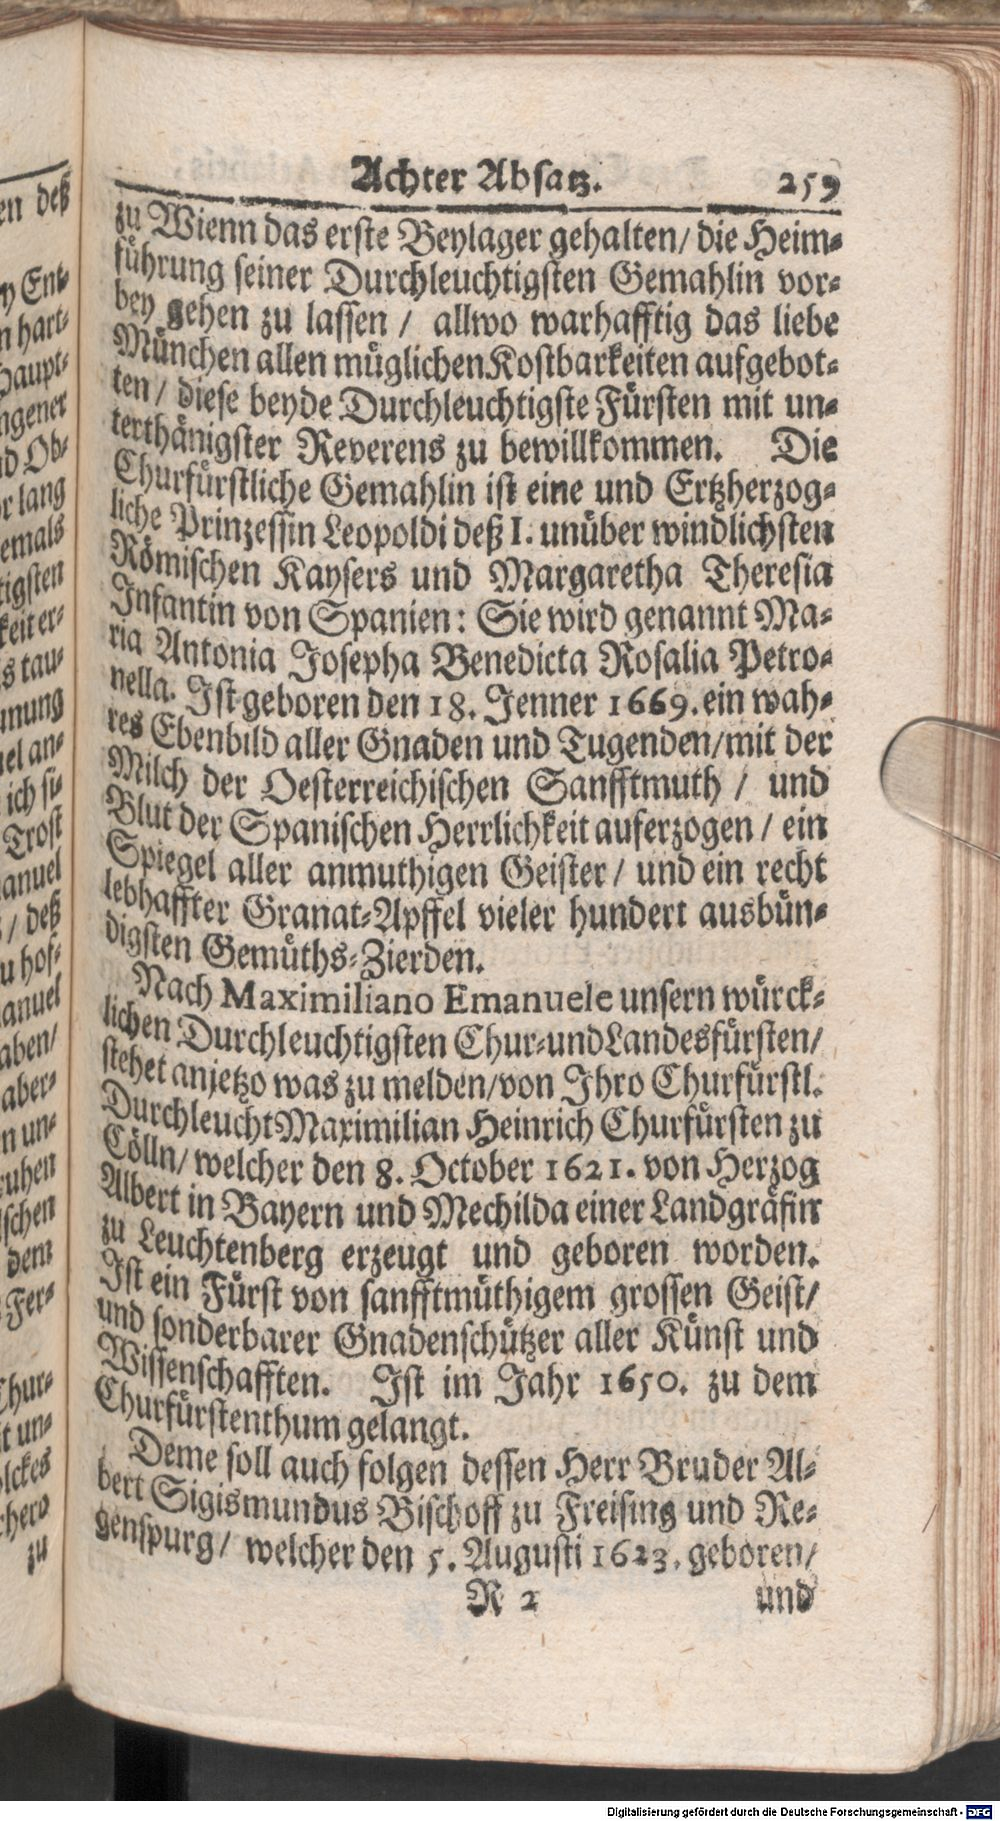 Achter Absatz. 259
zu Wienn das erste Beylager gehalten/ die Heim-
führung seiner Durchleuchtigsten Gemahlin vor-
bey gehen zu lassen / allwo warhafftig das liebe
München allen müglichen Kostbarkeiten aufgebot-
ten / diese beyde Durchleuchtigste Fürsten mit un-
terthänigster Reverens zu bewillkommen. Die
Churfürstliche Gemahlin ist eine und Ertzherzog-
liche Prinzessin Leopoldi deß I. unüber windlichsten
Römischen Kaysers und Margaretha Theresia
Infantin von Spanien: Sie wird genannt Ma-
ria Antonia Josepha Benedicta Rosalia Petro-
nella. Ist geboren den 18. Jenner 1669. ein wah-
res Ebenbild aller Gnaden und Tugenden/mit der
Milch der Oesterreichischen Sanfftmuth / und
Blut der Spanischen Herrlichkeit auferzogen / ein
Spiegel aller anmuthigen Geister / und ein recht
lebhaffter Granat-Apffel vieler hundert ausbün-
digsten Gemüths-Zierden.
Nach Maximiliano Emanuele unsern würck-
lichen Durchleuchtigsten Chur-und Landesfürsten/
stehet anjetzo was zu melden/von Ihro Churfürstl.
Durchleucht Maximilian Heinrich Churfürsten zu
Cölln/ welcher den 8. October 1621. von Herzog
Albert in Bayern und Mechilda einer Landgräfin
zu Leuchtenberg erzeugt und geboren worden.
Ist ein Fürst von sanfftmüthigem grossen Geist/
und sonderbarer Gnadenschützer aller Künst und
Wissenschafften. Ist im Jahr 1650. zu dem
Churfürstenthum gelangt.
Deme soll auch folgen dessen Herr Bruder Al-
bert Sigismundus Bischoff zu Freising und Re-
genspurg/ welcher den 5. Augusti 1623. geboren/
R 2 und
Digitalisierung gefördert durch die Deutsche Forschungsgemeinschaft - DFG